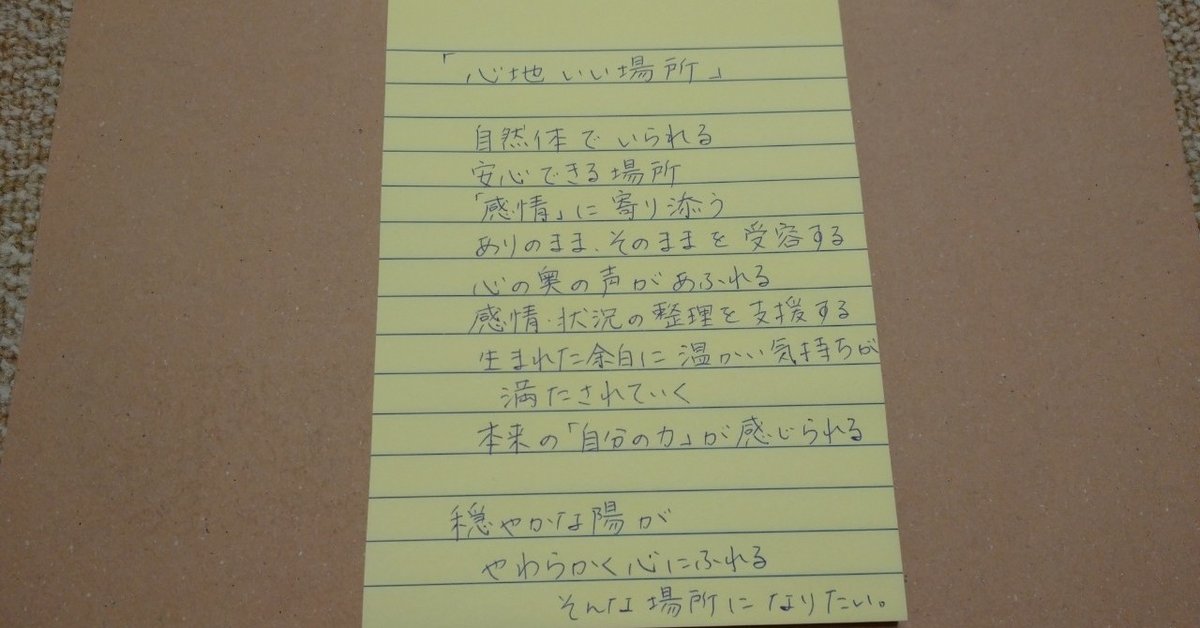 「心地いい場所」
自然体でいられる
安心できる場所
「感情」に寄り添う
ありのまま、そのままを受容する
心の奥の声があふれる
感情・状況の整理を支援する
生まれた余白に温かい気持ちが
満たされていく
本来の「自分の力」が感じられる
穏やかな陽が
やわらかく心にふれる
そんな場所になりたい。